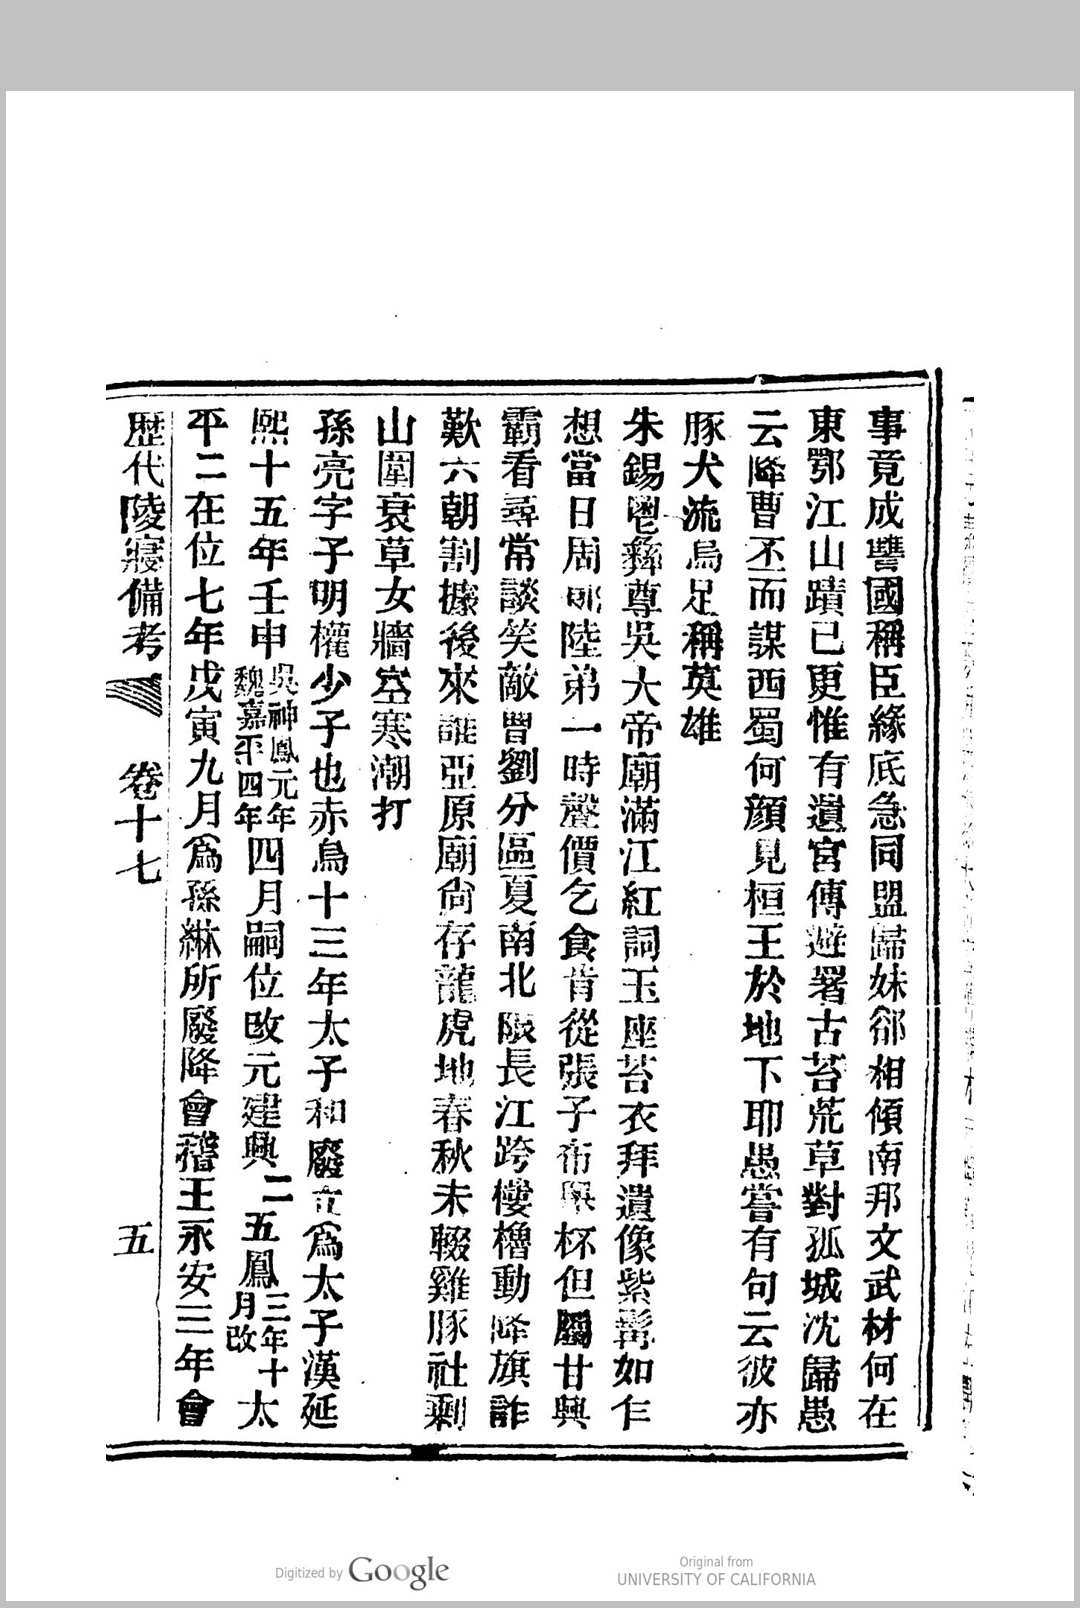 事竟成讐國稱臣緣底急同盟歸妹郤相傾南邦文武材何在
東鄂江山蹟已更惟有遺宮傳避署古苔荒草對孤城沈歸愚
云降曹丕而謀西蜀何顏見桓王於地下耶愚嘗有句云彼亦
豚犬流烏足稱英雄
朱錫鬯彝尊吳大帝廟滿江紅詞玉座苔衣拜遺像紫髯如乍
想當日周郎陸弟一時聲價乞食肯從張子布舉杯但屬甘興
霸看尋常談笑敵曹劉分區夏南北限長江跨樓櫓動降旗詐
歎六朝割據後來誰亞原廟尙存龍虎地春秋未輟雞豚社剩
山圍衰草女牆空寒潮打
孫亮字子明權少子也赤烏十三年太子和廢立爲太子漢延
熙十五年壬申吳神鳳元年魏嘉平四年四月嗣位改元建興二五鳳三年十月改太
平二在位七年戊寅九月爲孫綝所廢降會稽王永安三年會
歷代陵寢備考 卷十七 五
Digitized by Google
Original from
UNIVERSITY OF CALIFORNIA